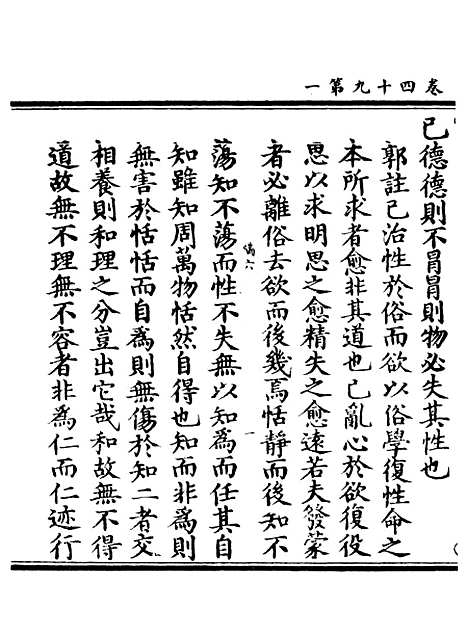 卷四十九第一
已德德則不冐冐則物必失其性也
郭註已治性於俗而欲以俗學復性命之
本所求者愈非其道也已亂心於欲復役
思以求明思之愈精失之愈逺若夫發蒙
者必離俗去欲而後幾焉恬靜而後知不
蕩知不蕩而性不失無以知為而任其自
知雖知周萬物恬然自得也知而非為則
無害於恬恬而自為則無傷於知二者交
相養則和理之分豈出它哉和故無不得
道故無不理無不容者非為仁而仁迹行